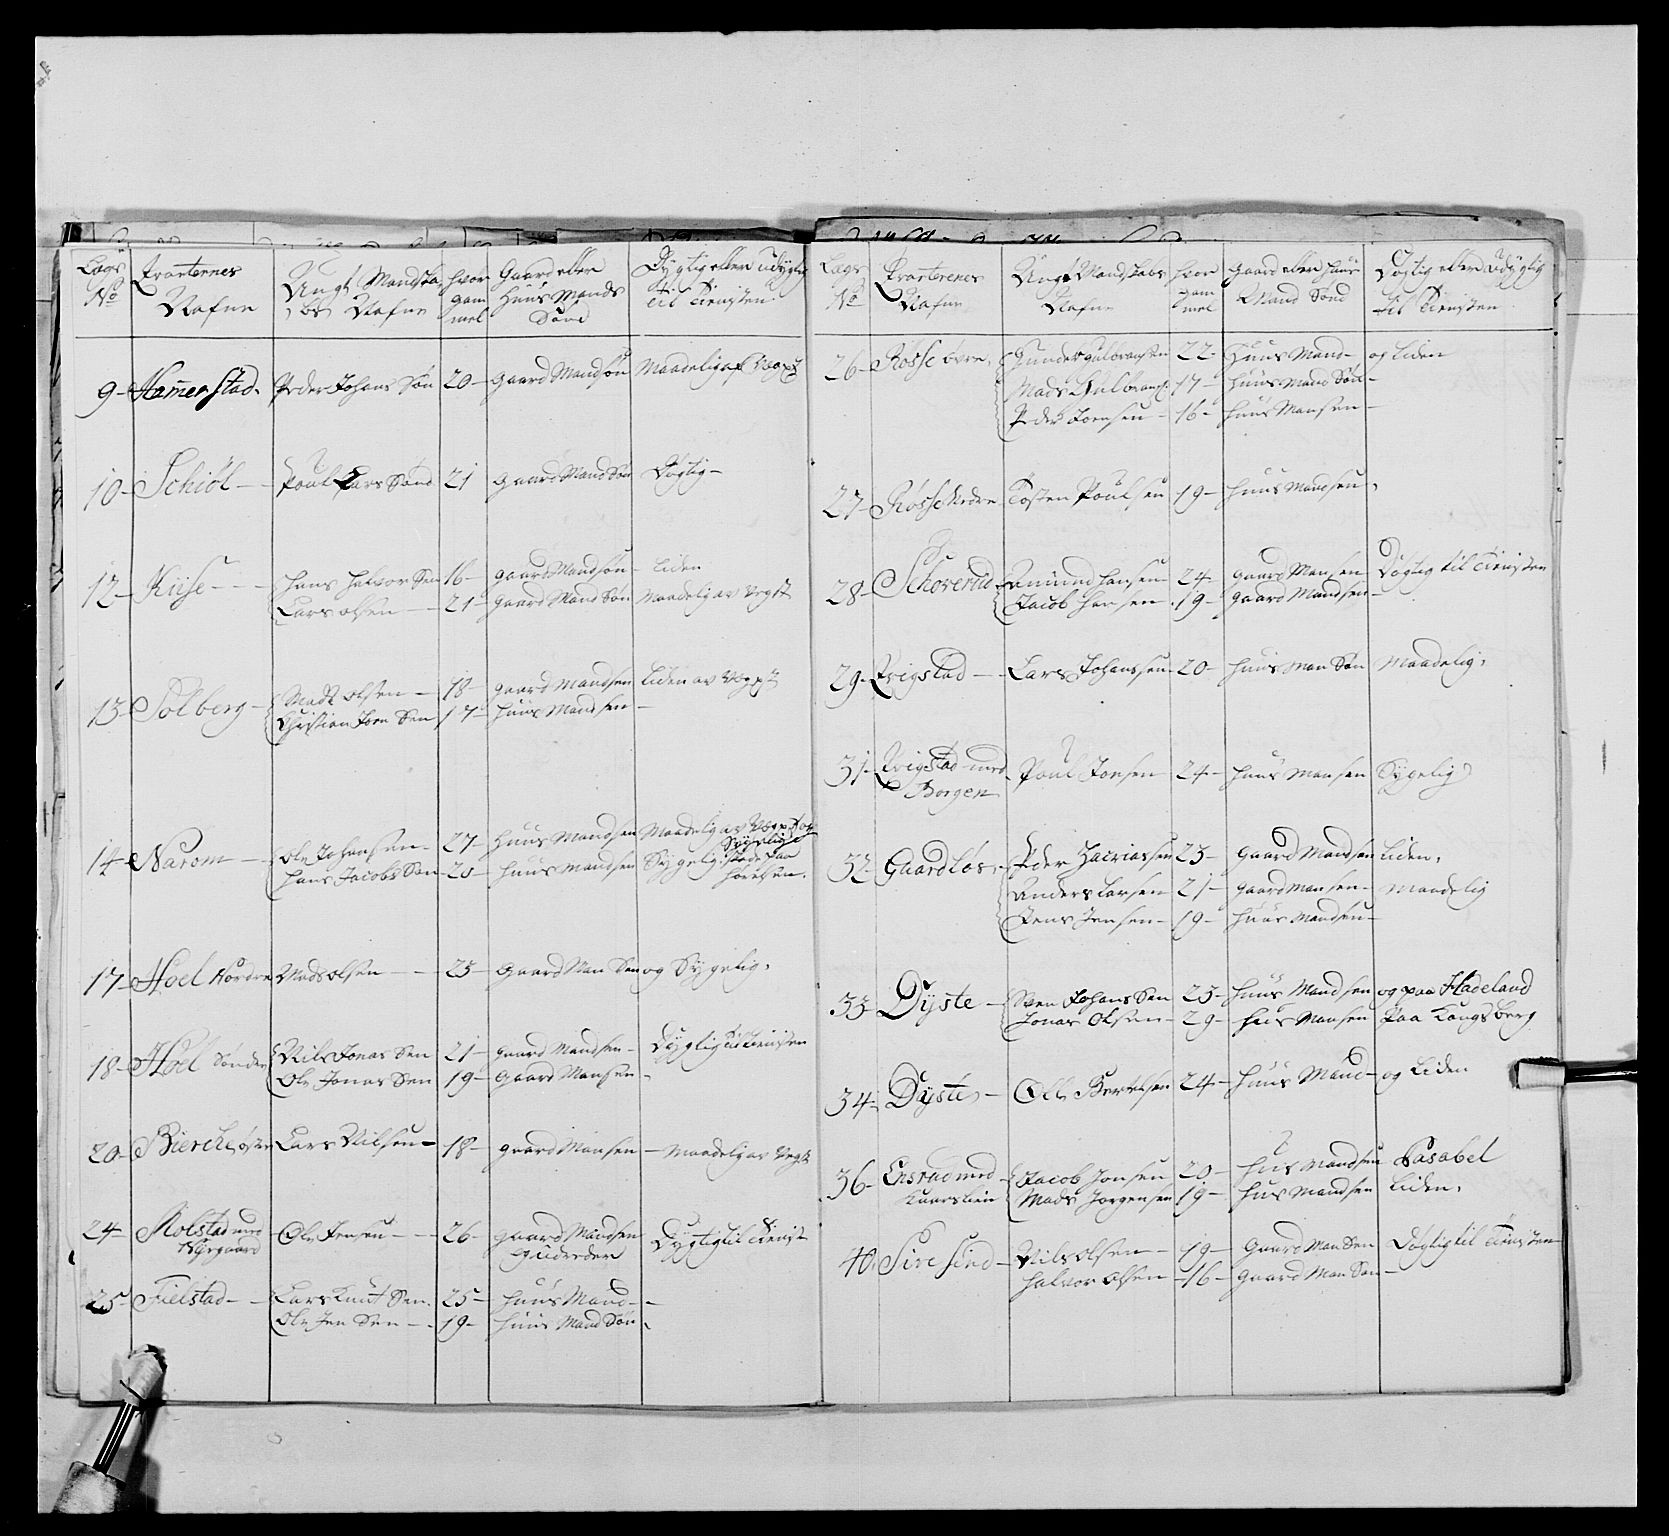 Lægs No | Qvarternes Nafne | Ungt Mandskabs Nafne | hvor gammel | Gaard eller Huus Mands Sønd | Dygtig eller udygtig til Tienisten
9 - Hammerstad - Peder Johans Søn 20 - gaard Mandsøn Maadelig af Væxt
10 - Schiøl - Poul Lars Sønd 21 gaard Mand Søn Dygtig -
12 - Kiise - Hans Halvor Sen 16 - gaard Mandsøn - Liden
Lars Olsen - 21 - gaard Mand Søn Maadelig av Vegst
13 - Solberg - Mads Olsen - 18 - gaard Mandsen Liden av Vexst
Christian Joen Sen 17 - huus Mandsen -
14 - Narom - Ole Johansen - 27 - huus Mandsen Maadelig av Væxst og Sygelig
Hans Jacobs Sen - 20 - huus Mandsen Sygelig
17 - Hoel Nordre Mads Olsen - 25 - Gaard Man Sen og Sygelig.
18 - Hoel Søndre Nils Jonas Sen 21 - gaard Mandsen - Dygtig til Tienisten
Ole Jonas Sen 19 - Gaard Mansen -
20 - Biercke østre Lars Nilsen - 18 - gaard Mansen - Maadelig av Vegst
24 - Kolstad med Nygaard Ole Jensen - 26 - gaard Mandsen Dygtig til Tienist
25 - Fielstad - Lars Knut Sen. 25 - huus Mand -
Ole Jen Sen - 19 - huus Mand Søn
Lægs No | Qvarterenes Nafne | Ungt Mandskabs Nafne | hvor gammel | gaard eller huus Mand Sønd | Døgtig eller Udygtig til Tienisten
26 - Røsse øvre, Gunder Gulbransen 22 - huus Mand - og Liden
Mads Gulbransen 17 - huus Mand Søn -
Peder Joensen - 16 - huus Mansen -
27 - Røsse Nedre Tosten Poulsen 19 - huus Mandsen,
28 - Schoverud Amund Hansen 24 - gaard Mansen Døgtig til Tienisten
Jacob Hansen 19 - gaard Mandsen -
29 - Qvigstad - Lars Johanssen 20 - huus Man Søn Maadelig,
31 - Qvigstad med Borgen Poul Jonsen 24 - huus Mansen Sygelig
32 - Gaardløs - Peder Zacriassen 23 - gaard Mandsen Liden,
Anders Larsen 21 - gaard Mansen - Maadelig
Jens Jensen - 19 - huus Mandsen -
33 - Dyste - Sven Johans Sen 23 - huus Mandsen og paa Hadeland
Jonas Olsen - 29 - hus Mansen Paa Kongsberg
34 - Dyste, - Ole Bertelsen 24 - huus Mand - og Liden
36 - Ensrud med Jacob Jonsen 20 - hus Mandsen Pasabel
Mads Jorgensen 19 - hus Mandsen Liden,
40 - Sire Sind - Nils Olsen - 19 - Gaard Man Sen Døgtig til Tienisten
Halvor Olsen - 16 - gaard Man Søn -